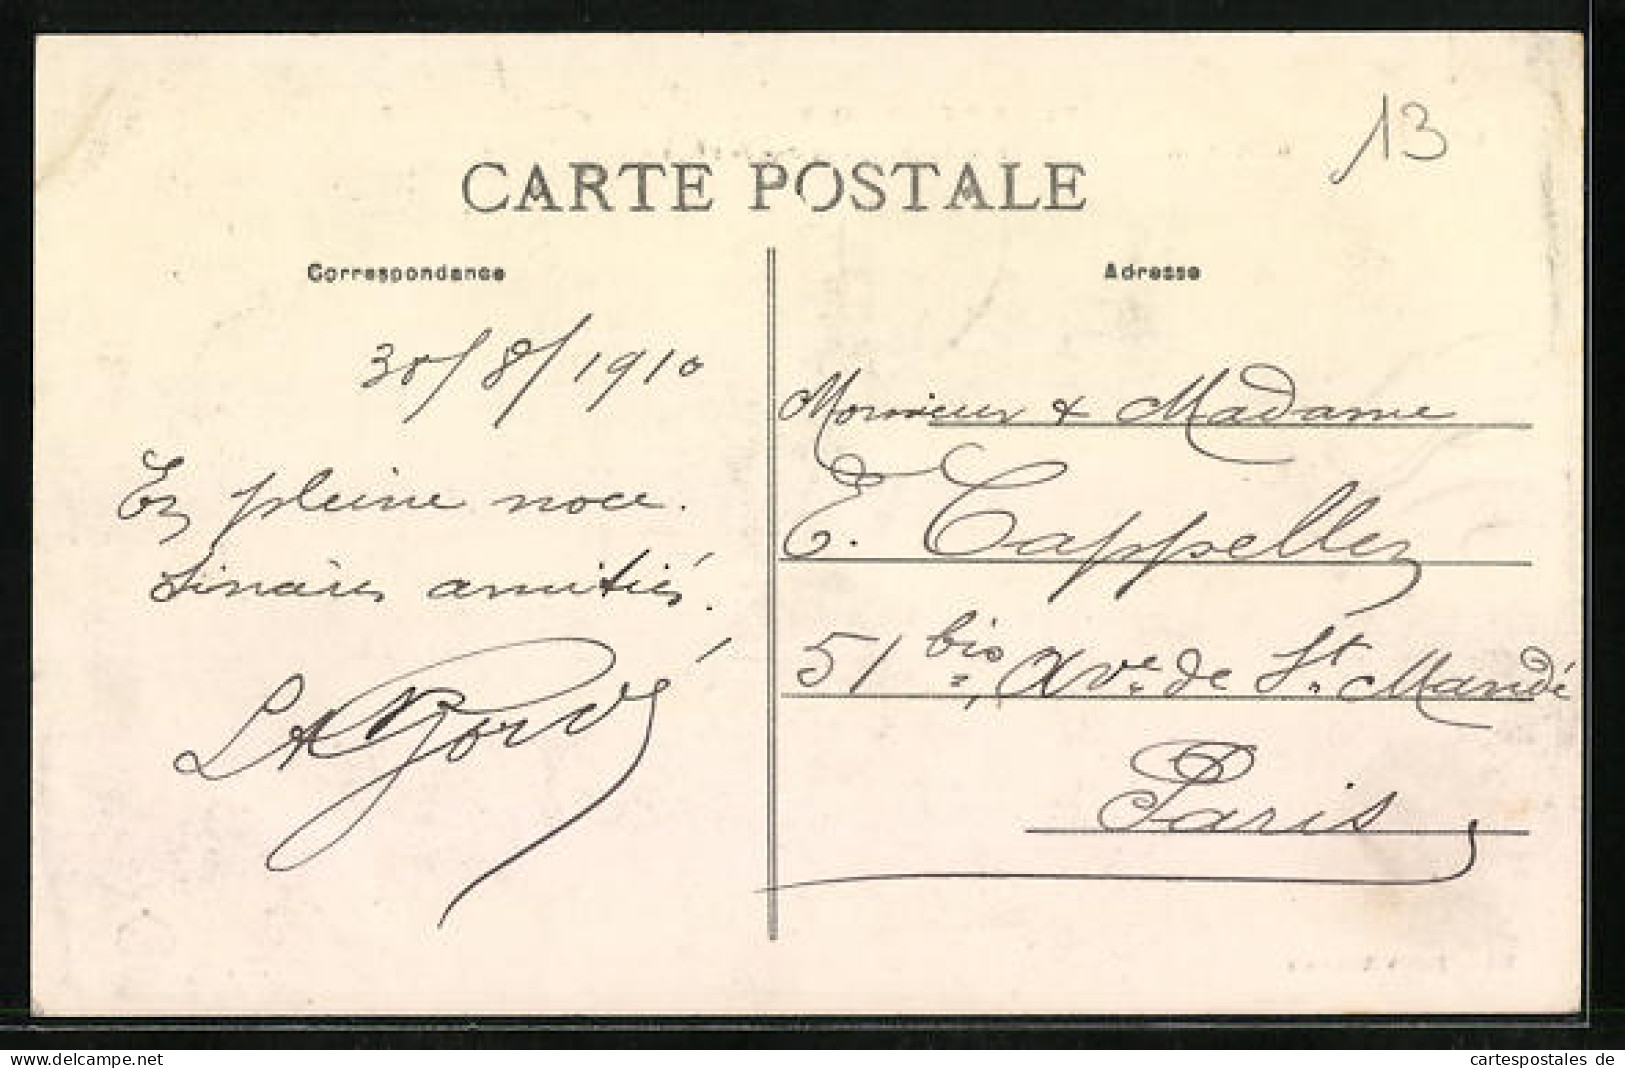 13
CARTE POSTALE
Correspondance
30/8/1910
En pleine noce.
Sincères amitiés.
Adresse
Monsieur & Madame
E. Cappelle
51 bis, Ave. de St. Mandé
Paris
delcampe.net
cartespostales de